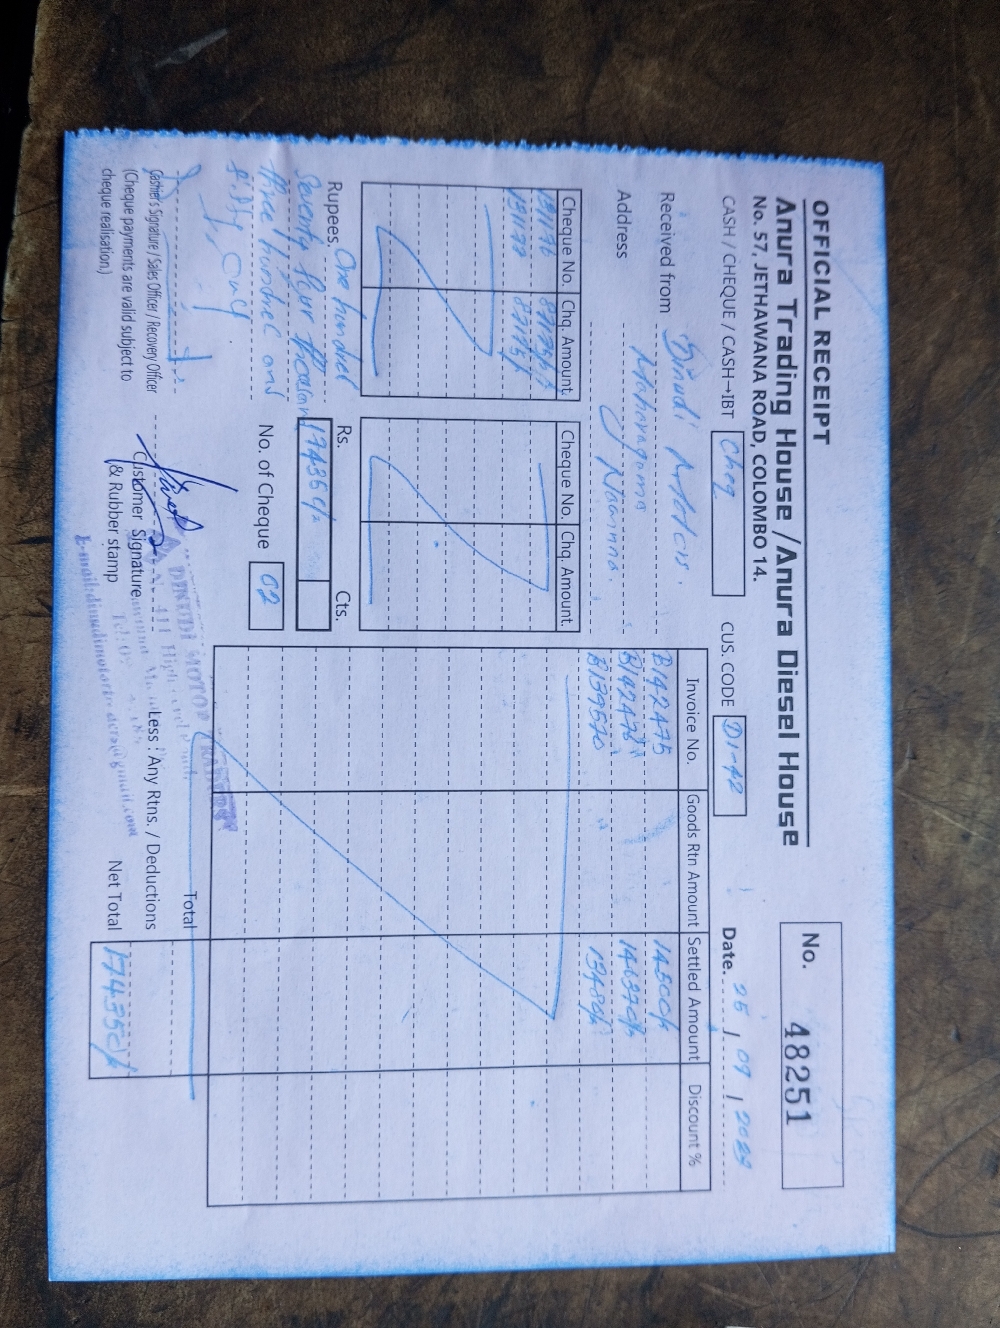 OFFICIAL RECEIPT
Anura Trading House / Anura Diesel House
No. 57, JETHAWANA ROAD, COLOMBO 14.
No. 48251
CASH / CHEQUE / CASH→IBT Cheq
CUS. CODE D1-42
Date. 25 / 09 / 2024
Received from Dinudi Motors.
Address Maharagama
Invoice No. Goods Rtn Amount Settled Amount Discount %
B142475 14500/-
B142476 146370/-
B139570 13480/-
Cheque No. Chq. Amount Cheque No. Chq. Amount
191176 87175/-
191177 87175/-
Rupees. One hundred
Seventy four thousand
three hundred and
fifty only
Rs. Cts.
174350/-
No. of Cheque 02
Cashier's Signature / Sales Officer / Recovery Officer
(Cheque payments are valid subject to
cheque realisation.)
Customer Signature
& Rubber stamp
DINUDI MOTOR
411 High Level
Total
Less : Any Rtns. / Deductions
Net Total 174350/-